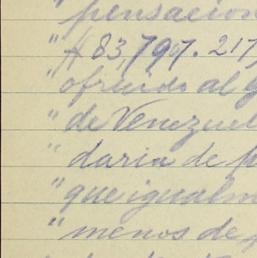 " pensacion
" £83,797.217
" ofrecido al G
" de Venezuel
" daria de
" que igualm
" menos de